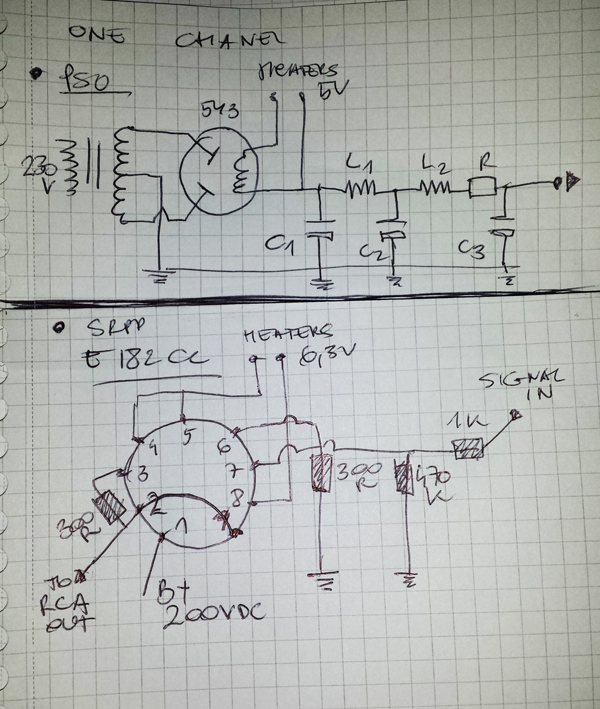 ONE CHANEL
PSO
HEATERS
5V
5Y3
230
V
L1
L2
R
C1
C2
C3
SRPP
E182CC
HEATERS
6,3V
SIGNAL
IN
1K
4
5
6
3
7
300
R
470
K
2
8
300
R
1
TO
RCA
OUT
B+
200VDC